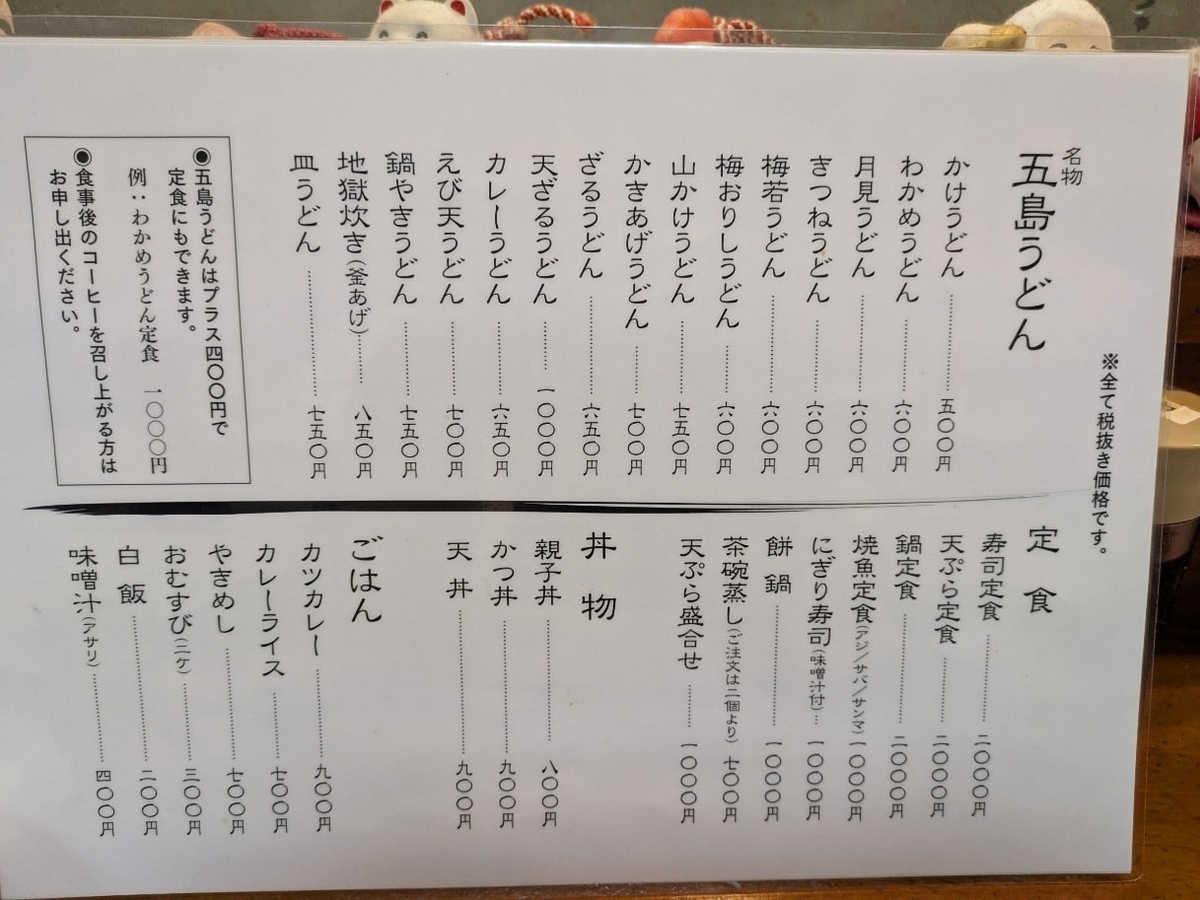 ※全て税抜き価格です。
名物
五島うどん
かけうどん 五〇〇円
わかめうどん 六〇〇円
月見うどん 六〇〇円
きつねうどん 六〇〇円
梅若うどん 六〇〇円
梅おりしうどん 六〇〇円
山かけうどん 七五〇円
かきあげうどん 七〇〇円
ざるうどん 六五〇円
天ざるうどん 一〇〇〇円
カレーうどん 六五〇円
えび天うどん 七〇〇円
鍋やきうどん 七五〇円
地獄炊き(釜あげ) 八五〇円
皿うどん 七五〇円
◉五島うどんはプラス四〇〇円で
定食にもできます。
例:わかめうどん定食 一〇〇〇円
◉食事後のコーヒーを召し上がる方は
お申し出ください。
定食
寿司定食 二〇〇〇円
天ぷら定食 二〇〇〇円
鍋定食 二〇〇〇円
焼魚定食(アジ/サバ/サンマ) 一〇〇〇円
にぎり寿司(味噌汁付) 一〇〇〇円
餅鍋 一〇〇〇円
茶碗蒸し(ご注文は二個より) 七〇〇円
天ぷら盛合せ 一〇〇〇円
丼物
親子丼 八〇〇円
かつ丼 九〇〇円
天丼 九〇〇円
ごはん
カツカレー 九〇〇円
カレーライス 七〇〇円
やきめし 七〇〇円
おむすび(二ケ) 三〇〇円
白飯 二〇〇円
味噌汁(アサリ) 四〇〇円